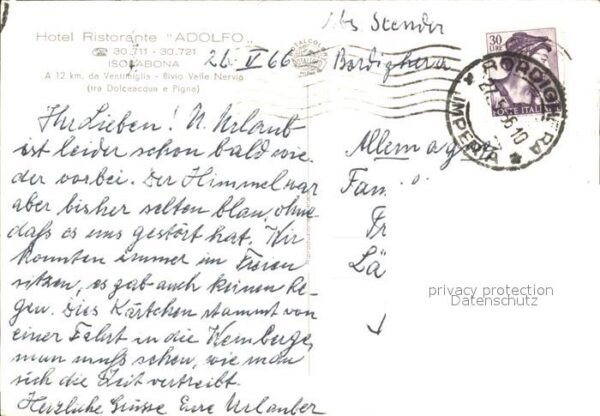 Hotel Ristorante "ADOLFO"
☎ 30.711 - 30.721
ISOLABONA
A 12 km. da Ventimiglia - Bivio Valle Nervia
(tra Dolceacqua e Pigna)
26 V 66
Stender
Bordighera
30
LIRE
POSTE ITALIANE
BORDIGHERA
IMPERIA
Ihr Lieben! U. Urlaub
ist leider schon bald wie-
der vorbei. Der Himmel war
aber bisher selten blau, ohne
daß es uns gestört hat. Wir
konnten immer im Freien
sitzen, es gab auch keinen Re-
gen. Dies Kärtchen stammt von
einer Fahrt in die Weinberge,
man muß sehen, wie man
sich die Zeit vertreibt.
Herzliche Grüsse Eure Urlauber
Allemagne
Fam
Fr
Lä
privacy protection
Datenschutz